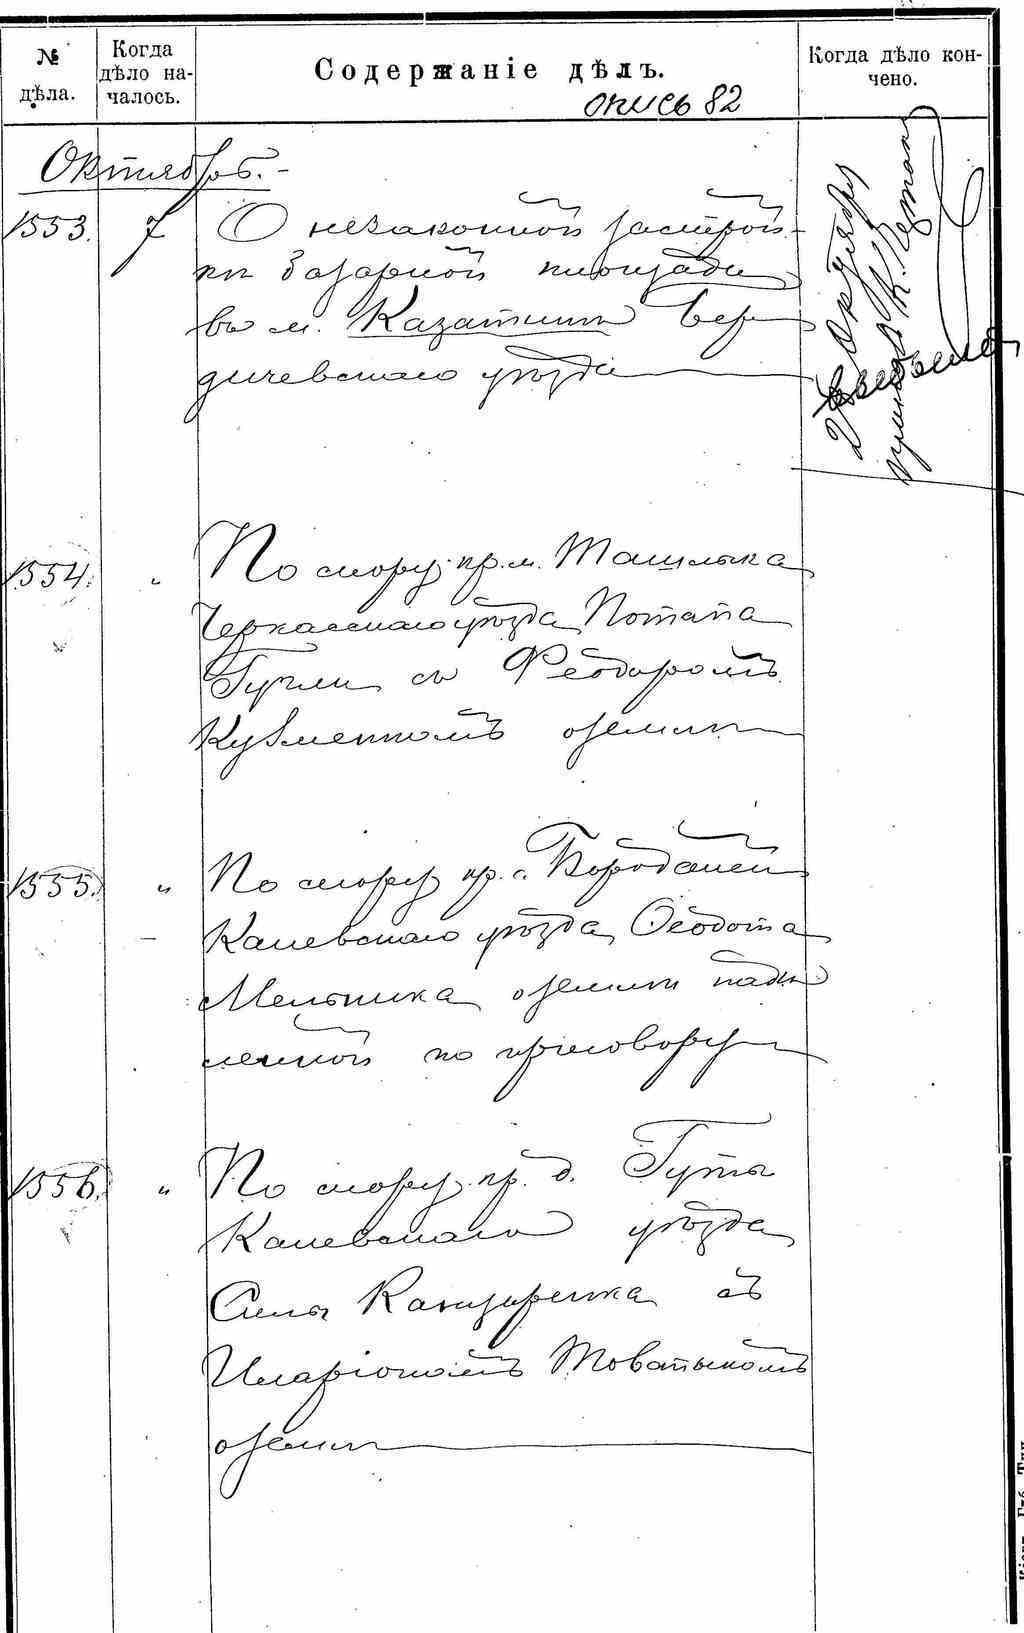 № дѣла.
Когда дѣло на-
чалось.
Содержаніе дѣлъ.
Когда дѣло кон-
чено.
опись 82
Октябрь.
1553. 7 О незаконной застрой-
кѣ базарной площади
въ м. Казатинѣ Бер
дичевскаго уѣзда
1554. " По спору кр. м. Ташлыка
Черкасскаго уѣзда Потапа
съ Феодоромъ
Кузменкомъ о земли
1555. " По спору кр. с.
Каневскаго уѣзда Ѳеодота
Мельника о земли надѣ
ленной по приговору
1556. " По спору кр. д. Гуты
Каневскаго уѣзда
Силы съ
Иларіономъ
о земли